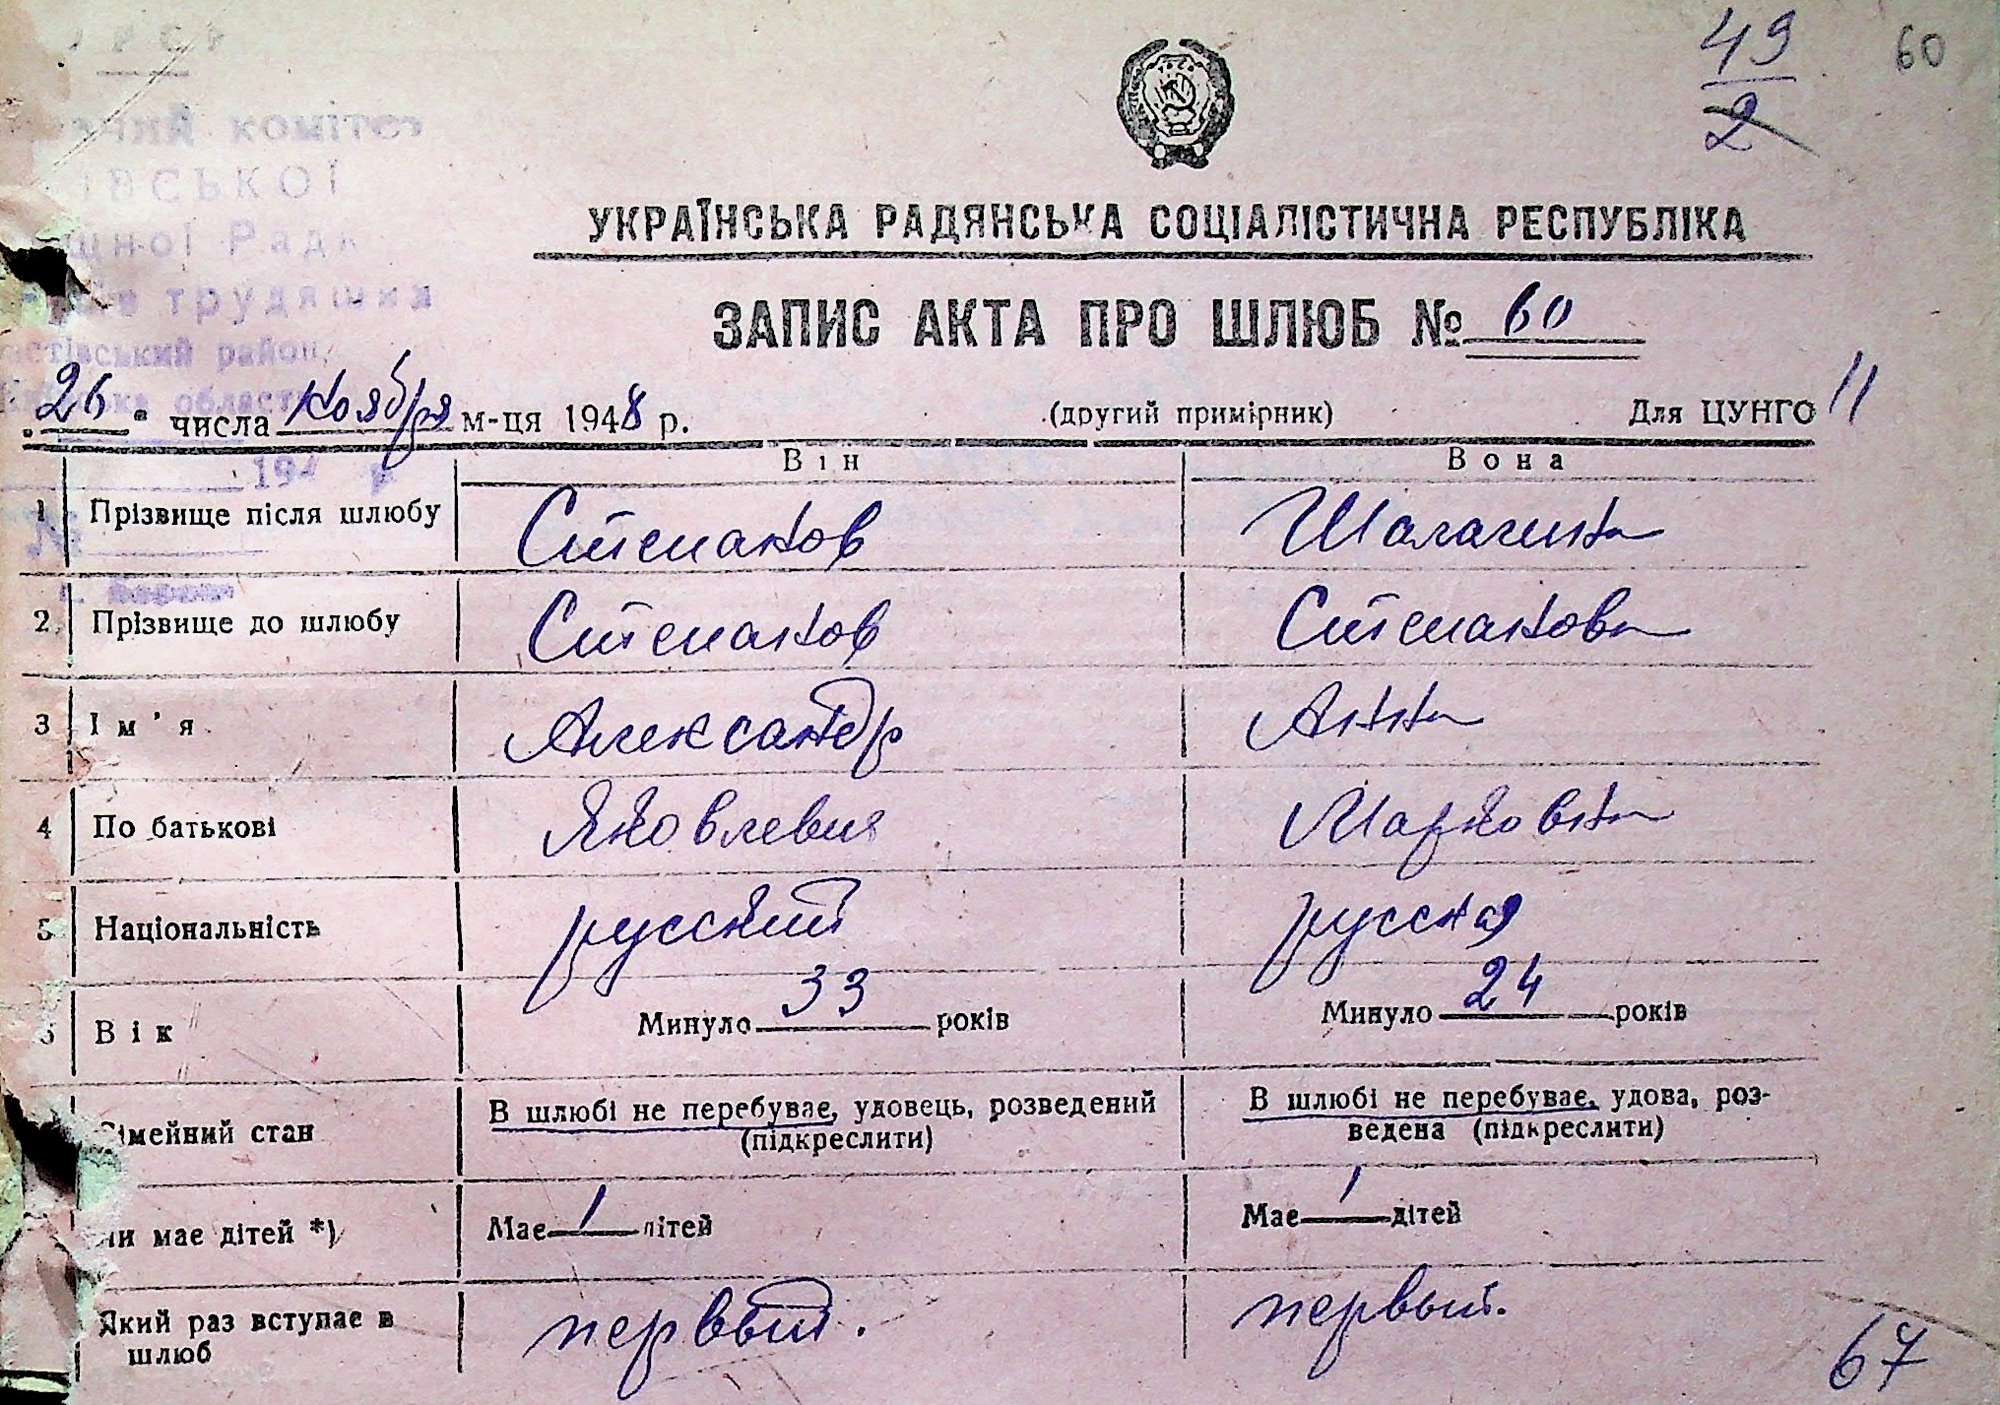 49
2
60
комітет
ської
Рад
трудящих
район,
області
УКРАЇНСЬКА РАДЯНСЬКА СОЦІАЛІСТИЧНА РЕСПУБЛІКА
ЗАПИС АКТА ПРО ШЛЮБ № 60
„26" числа ноября м-ця 1948 р. (другий примірник) Для ЦУНГО 11
194 р
№
Він Вона
1 Прізвище після шлюбу Степанов Шалагина
2 Прізвище до шлюбу Степанов Степанова
3 Ім'я Александр Анна
4 По батькові Яковлевич Марковна
5 Національність русский русская
6 Вік Минуло 33 років Минуло 24 років
Сімейний стан В шлюбі не перебуває, удовець, розведений (підкреслити) В шлюбі не перебуває, удова, роз-
ведена (підкреслити)
Чи має дітей *) Має 1 дітей Має 1 дітей
Який раз вступає в первый. первый.
шлюб
67